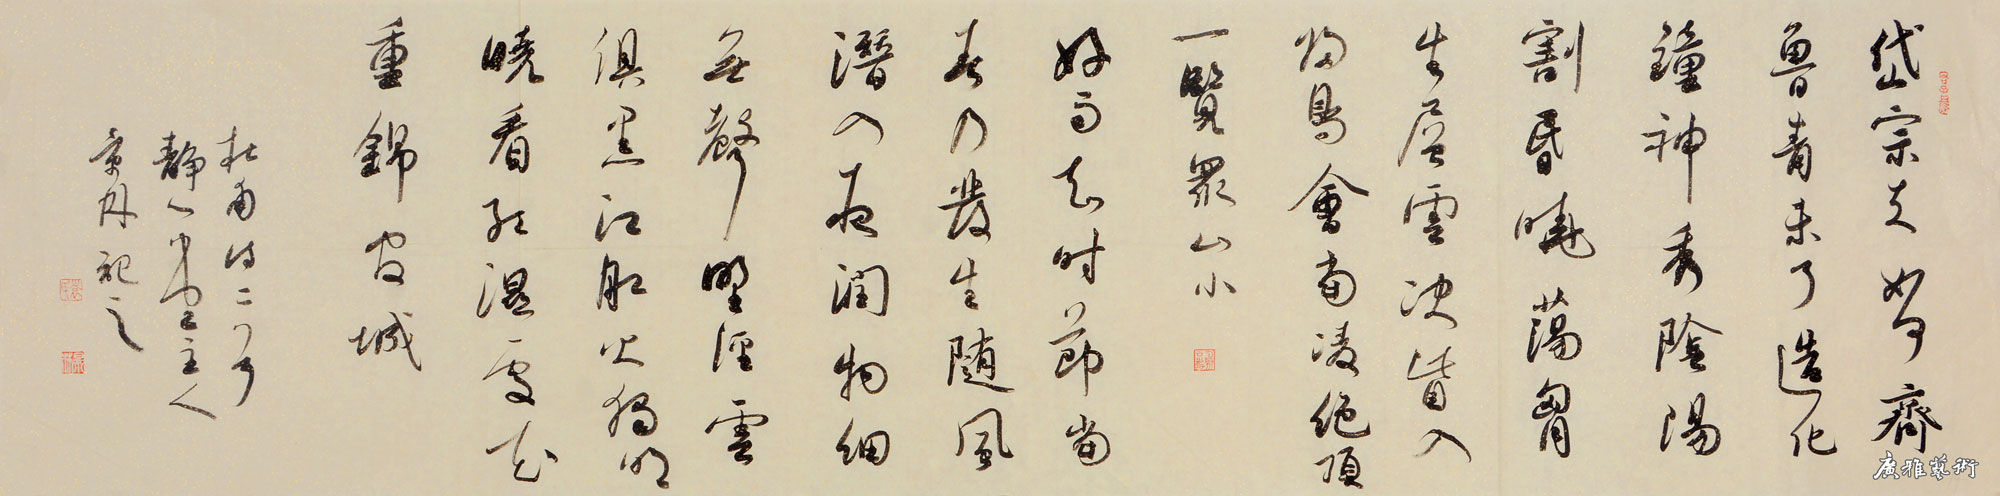 岱宗夫如何齊
魯青未了造化
鐘神秀陰陽
割昏曉蕩胷
生層雲決眥入
歸鳥會當凌絕頂
一覽眾山小
好雨知時節當
春乃發生隨風
潛入夜潤物細
無聲野徑雲
俱黑江船火獨明
曉看紅濕處花
重錦官城
杜甫詩二首
靜一草堂主人
景月記之
廣雅藝術